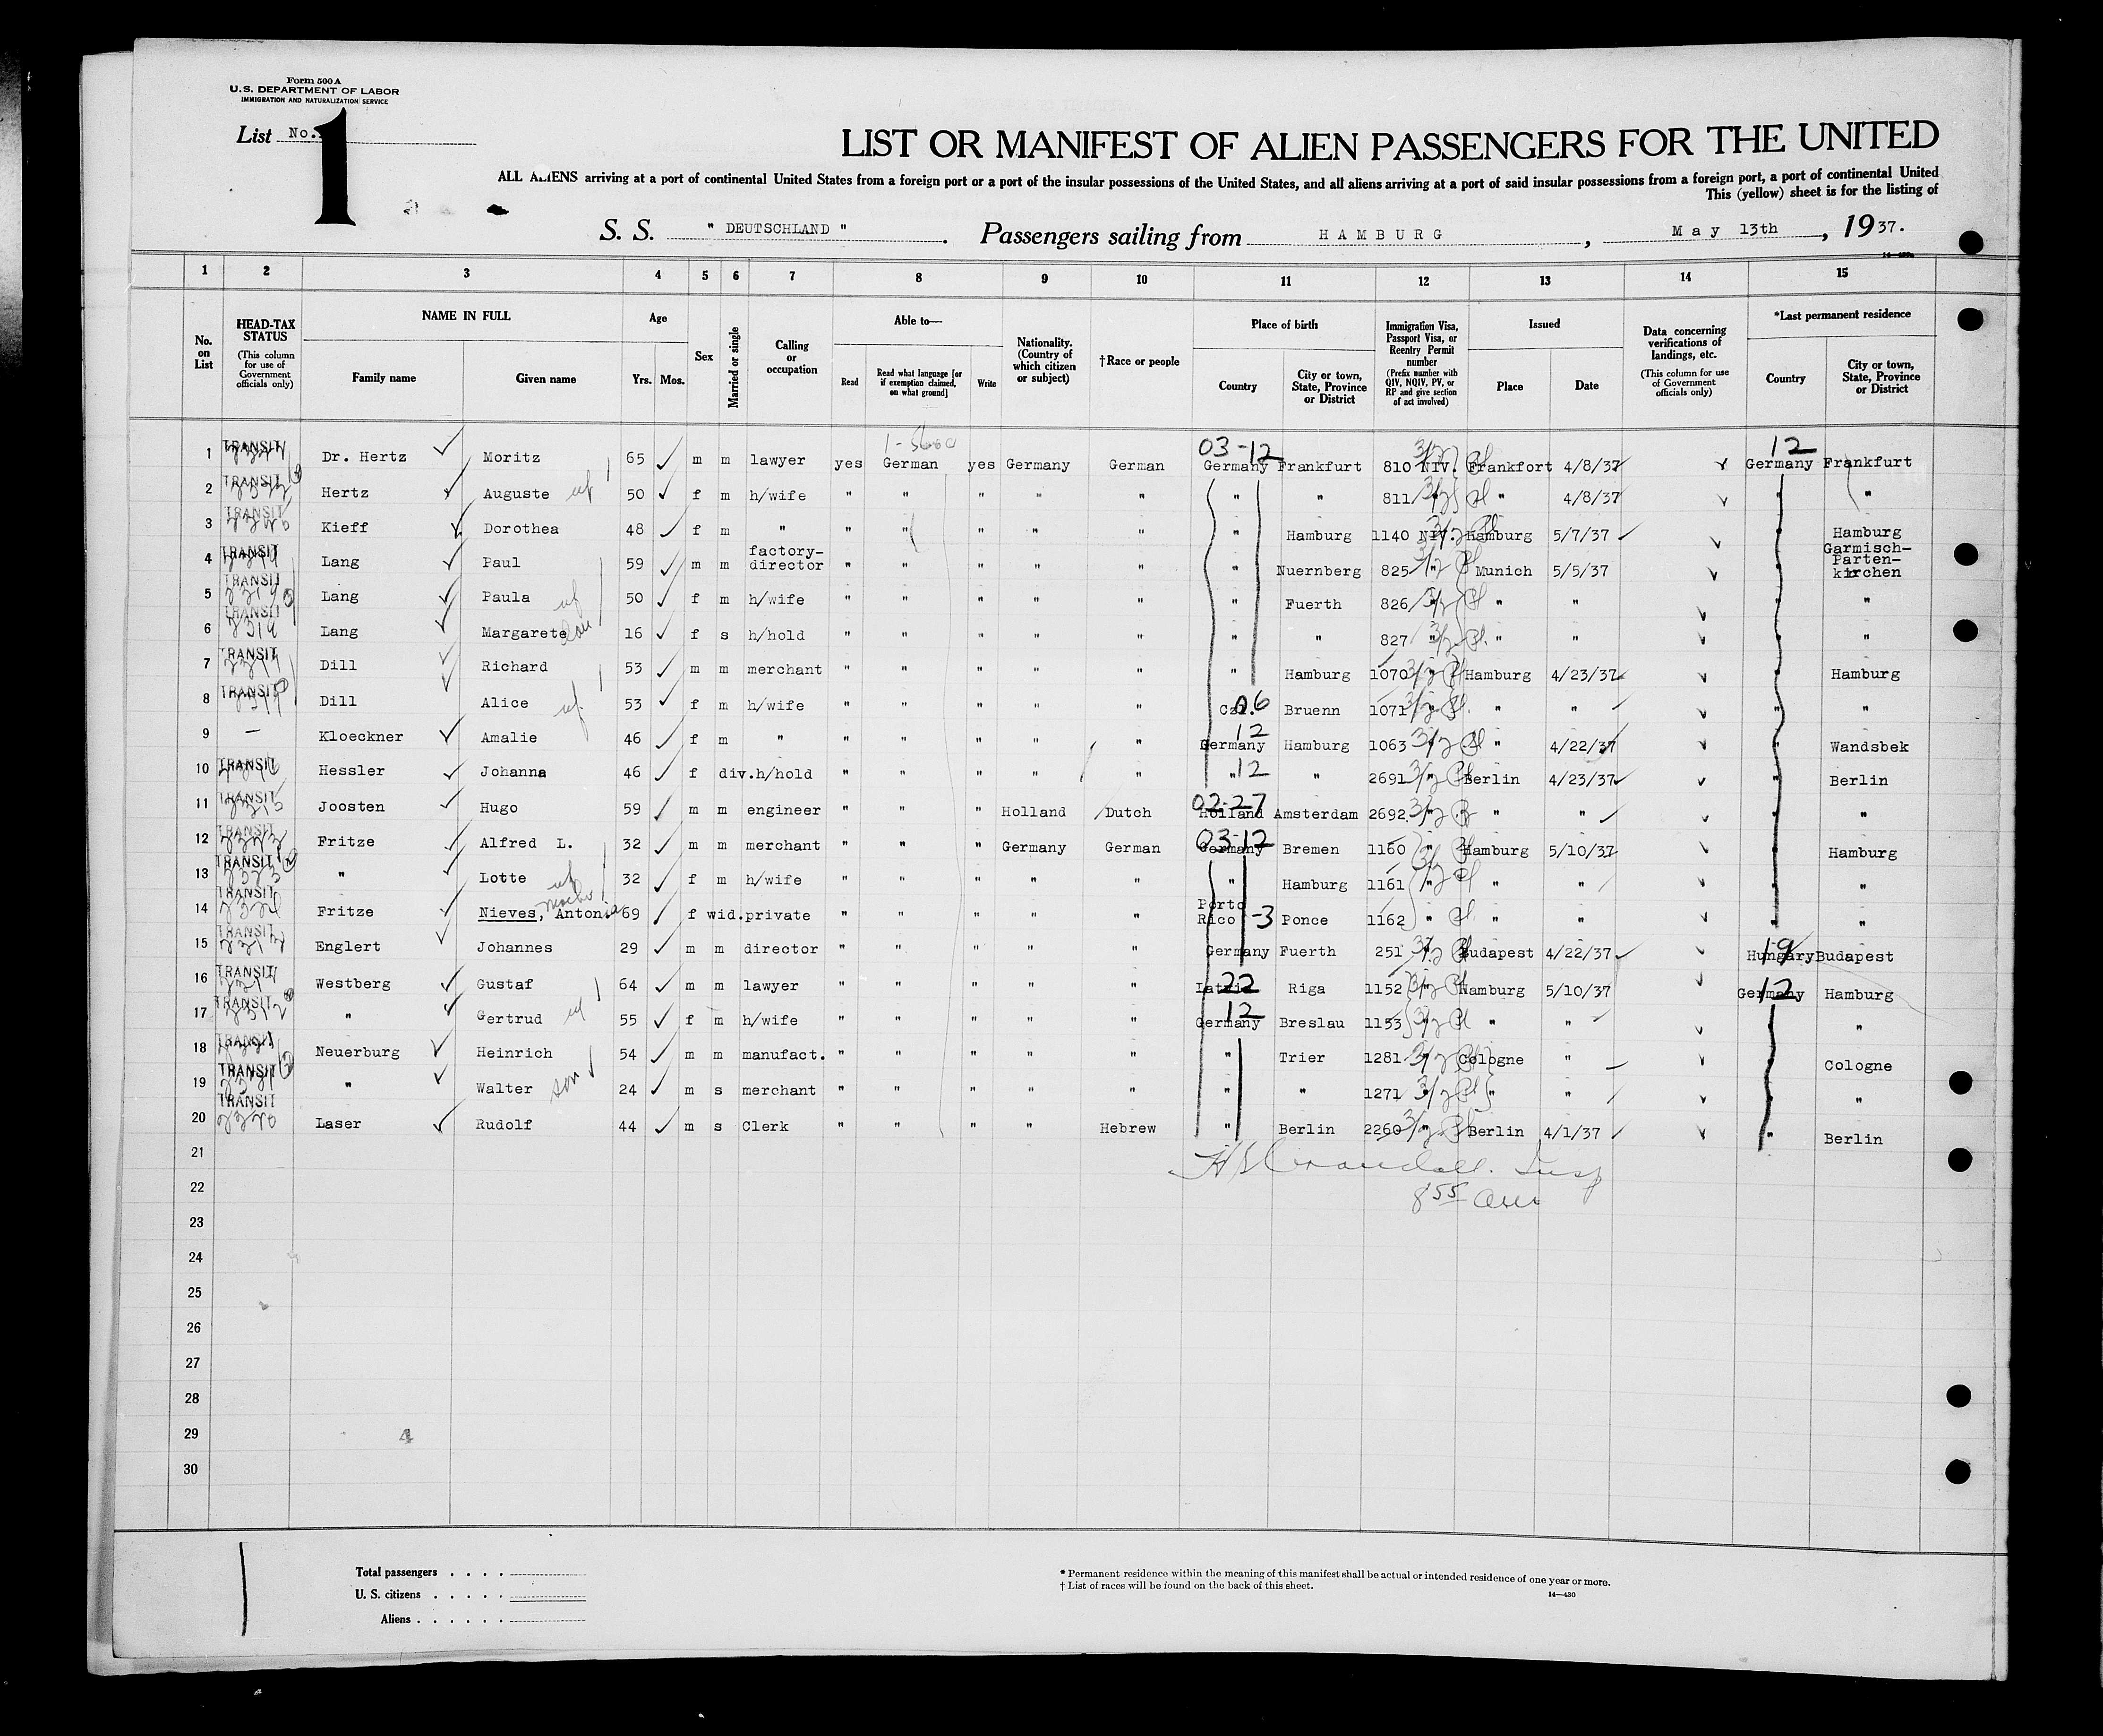 Form 500 A
U.S. DEPARTMENT OF LABOR
IMMIGRATION AND NATURALIZATION SERVICE
List No. 1
LIST OR MANIFEST OF ALIEN PASSENGERS FOR THE UNITED
ALL ALIENS arriving at a port of continental United States from a foreign port or a port of the insular possessions of the United States, and all aliens arriving at a port of said insular possessions from a foreign port, a port of continental United
This (yellow) sheet is for the listing of
S. S. " DEUTSCHLAND " . Passengers sailing from HAMBURG , May 13th , 1937.
1 2 3 4 5 6 7 8 9 10 11 12 13 14 15
No. on List
HEAD-TAX STATUS (This column for use of Government officials only)
NAME IN FULL Family name Given name
Age Yrs. Mos.
Sex
Married or single
Calling or occupation
Able to— Read Read what language [or if exemption claimed, on what ground] Write
Nationality. (Country of which citizen or subject)
†Race or people
Place of birth Country City or town, State, Province or District
Immigration Visa, Passport Visa, or Reentry Permit number (Prefix number with QIV, NQIV, PV, or RP and give section of act involved)
Issued Place Date
Data concerning verifications of landings, etc. (This column for use of Government officials only)
*Last permanent residence Country City or town, State, Province or District
03-12 12
1 TRANSIT Dr. Hertz Moritz 65 m m lawyer yes German yes Germany German Germany Frankfurt 810 NIV. Frankfort 4/8/37 Germany Frankfurt
2 TRANSIT Hertz Auguste wf 50 f m h/wife " " " " " " " 811 " " 4/8/37 " "
3 TRANSIT Kieff Dorothea 48 f m " " " " " " " Hamburg 1140 NIV. Hamburg 5/7/37 " Hamburg
4 TRANSIT Lang Paul 59 m m factory-director " " " " " " Nuernberg 825 " Munich 5/5/37 " Garmisch-Partenkirchen
5 TRANSIT Lang Paula wf 50 f m h/wife " " " " " " Fuerth 826 " " " " "
6 TRANSIT Lang Margarete dau 16 f s h/hold " " " " " " " 827 " " " " "
7 TRANSIT Dill Richard 53 m m merchant " " " " " " Hamburg 1070 " Hamburg 4/23/37 " Hamburg
8 TRANSIT Dill Alice wf 53 f m h/wife " " " " " 06 Bruenn 1071 " " " " "
9 — Kloeckner Amalie 46 f m " " " " " " Germany 12 Hamburg 1063 " " 4/22/37 " Wandsbek
10 TRANSIT Hessler Johanna 46 f div. h/hold " " " " " " 12 " 2691 " Berlin 4/23/37 " Berlin
11 TRANSIT Joosten Hugo 59 m m engineer " " " Holland Dutch 02-27 Holland Amsterdam 2692 " " " " "
12 TRANSIT Fritze Alfred L. 32 m m merchant " " " Germany German 03-12 Germany Bremen 1160 " Hamburg 5/10/37 " Hamburg
13 TRANSIT " Lotte wf 32 f m h/wife " " " " " " Hamburg 1161 " " " " "
14 TRANSIT Fritze Nieves, Antonia 69 f wid. private " " " " " Porto Rico -3 Ponce 1162 " " " " "
15 TRANSIT Englert Johannes 29 m m director " " " " " Germany Fuerth 251 " Budapest 4/22/37 Hungary 19 Budapest
16 TRANSIT Westberg Gustaf 64 m m lawyer " " " " " Latvia 22 Riga 1152 " Hamburg 5/10/37 Germany 12 Hamburg
17 TRANSIT " Gertrud wf 55 f m h/wife " " " " " Germany 12 Breslau 1153 " " " " "
18 TRANSIT Neuerburg Heinrich 54 m m manufact. " " " " " " Trier 1281 " Cologne " " Cologne
19 TRANSIT " Walter son 24 m s merchant " " " " " " " 1271 " " " " "
20 TRANSIT Laser Rudolf 44 m s Clerk " " " " Hebrew " Berlin 2260 " Berlin 4/1/37 " Berlin
21
Crandall. Insp
22
8 55 am
23
24
25
26
27
28
29 4
30
Total passengers . . . .
U. S. citizens . . . . .
Aliens . . . . . .
* Permanent residence within the meaning of this manifest shall be actual or intended residence of one year or more.
† List of races will be found on the back of this sheet.
14—430